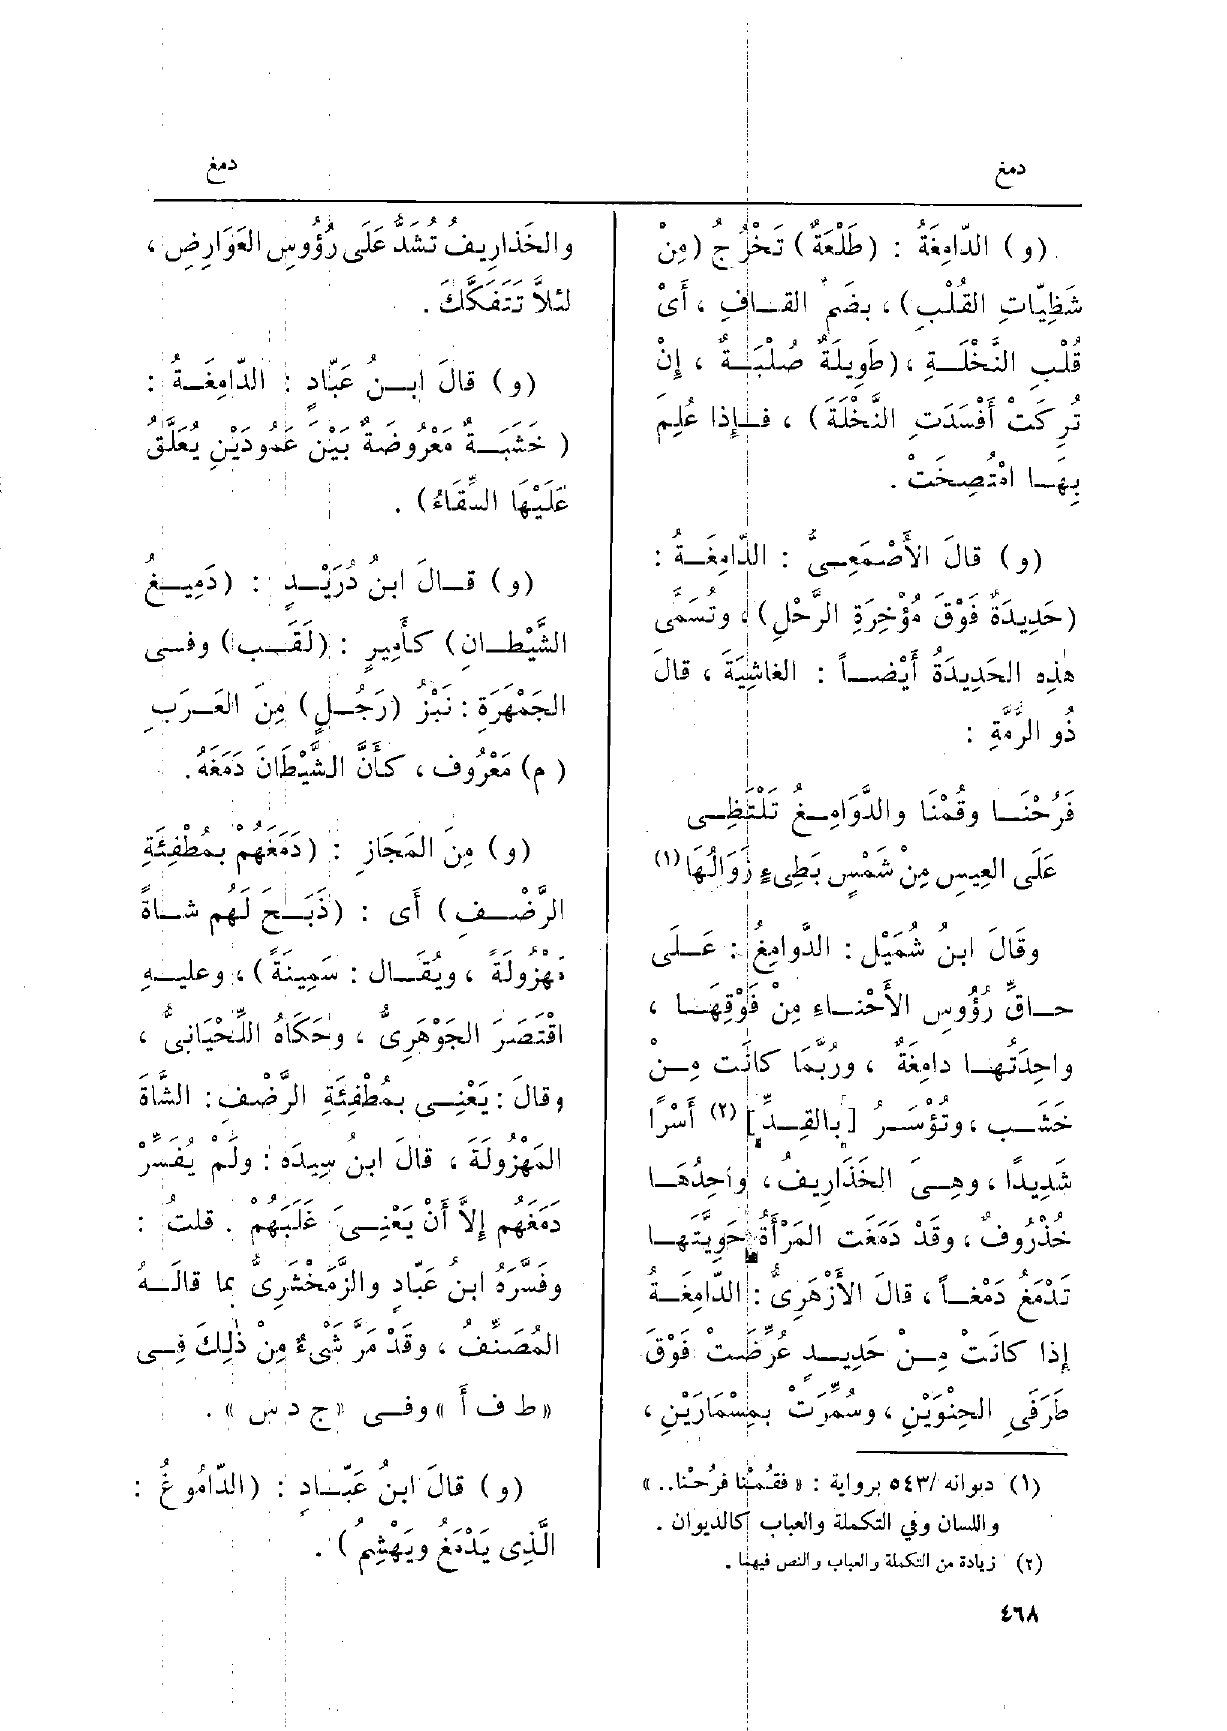 دمغ
دمغ
(و) الدَّامِغَةُ : (طَلْعَةٌ) تَخْرُجُ (مِنْ
شَظِيّاتِ القُلْبِ) ، بضَمِّ القافِ ، أَىْ
قُلْبِ النَّخْلَةِ ، (طَوِيلَةٌ صُلْبَةٌ ، إِنْ
تُرِكَتْ أَفْسَدَتِ النَّخْلَةَ) ، فإِذا عُلِمَ
بِهَا امْتُصِخَتْ .
(و) قالَ الأَصْمَعِىُّ : الدَّامِغَةُ :
(حَدِيدَةٌ فَوْقَ مُؤْخِرَةِ الرَّحْلِ) ، وتُسَمَّى
هٰذِه الحَدِيدَةُ أَيْضاً : الغاشِيَةَ ، قالَ
ذُو الرُّمَّةِ :
فَرُحْنَا وقُمْنَا والدَّوَامِغُ تَلْتَظِى
عَلَى العِيسِ مِنْ شَمْسٍ بَطِىءٍ زَوَالُهَا (١)
وقَالَ ابنُ شُمَيْل : الدَّوامِغُ : عَلَى
حاقِّ رُؤُوسِ الأَحْناءِ مِنْ فَوْقِهَا ،
واحِدَتُها دامِغَةٌ ، ورُبَّمَا كانَت مِنْ
خَشَبٍ ، وتُؤْسَرُ [بالقِدِّ] (٢) أَسْرًا
شَدِيدًا ، وهِىَ الخَذَارِيفُ ، واحِدُهَا
خُذْرُوفٌ ، وقَدْ دَمَغَت المَرْأَةُ حَوِيَّتَها
تَدْمَغُ دَمْغاً ، قالَ الأَزْهَرِىُّ : الدّامِغَةُ
إِذا كانَتْ مِنْ حَدِيدٍ عُرِّضَتْ فَوْقَ
طَرَفَىِ الحِنْوَيْنِ ، وسُمِّرَتْ بمِسْمَارَيْنِ ،
(١) ديوانه /٥٤٣ برواية : « فقُمْنا فَرُحْنا.. »
واللسان وفي التكملة والعباب كالديوان .
(٢) زيادة من التكملة والعباب والنص فيهما .
والخَذارِيفُ تُشَدُّ عَلَى رُؤُوسِ العَوَارِضِ ،
لئلاَّ تَتَفَكَّكَ .
(و) قالَ ابنُ عَبّادٍ : الدّامِغَةُ :
( خَشَبَةٌ مَعْرُوضَةٌ بَيْنَ عَمُودَيْنِ يُعَلَّقُ
عَلَيْهَا السِّقَاءُ) .
(و) قالَ ابنُ دُرَيْدٍ : (دَمِيغُ
الشَّيْطانِ) كأَمِيرٍ : (لَقَب) وفى
الجَمْهَرَةِ : نَبْزُ (رَجُلٍ) مِنَ العَرَبِ
( م) مَعْرُوف ، كأَنَّ الشَّيْطَانَ دَمَغَهُ.
(و) مِنَ المَجَازِ : (دَمَغَهُمْ بمُطْفِئَةِ
الرَّضْفِ) أَى : (ذَبَحَ لَهُم شاةً
مَهْزُولَةً ، ويُقَال : سَمِينَةً) ، وعليهِ
اقْتَصَرَ الجَوْهَرِىُّ ، وحَكَاهُ اللِّحْيَانِىُّ ،
وقالَ : يَعْنِى بمُطْفِئَةِ الرَّضْفِ : الشَّاةَ
المَهْزُولَةَ ، قالَ ابنُ سِيدَه : ولَمْ يُفَسِّرْ
دَمَغَهُم إِلاَّ أَنْ يَعْنِىَ غَلَبَهُمْ . قلتُ :
وفَسَّرَهُ ابنُ عَبّادٍ والزَّمَخْشَرِىُّ بما قالَهُ
المُصَنِّفُ ، وقَدْ مَرَّ شَىْءٌ مِنْ ذٰلِكَ فِى
« ط ف أ » وفى « ج د س » .
(و) قالَ ابنُ عَبّادٍ : (الدّامُوغُ :
الَّذِى يَدْمَغُ ويَهْشِمُ ) .
٤٦٨